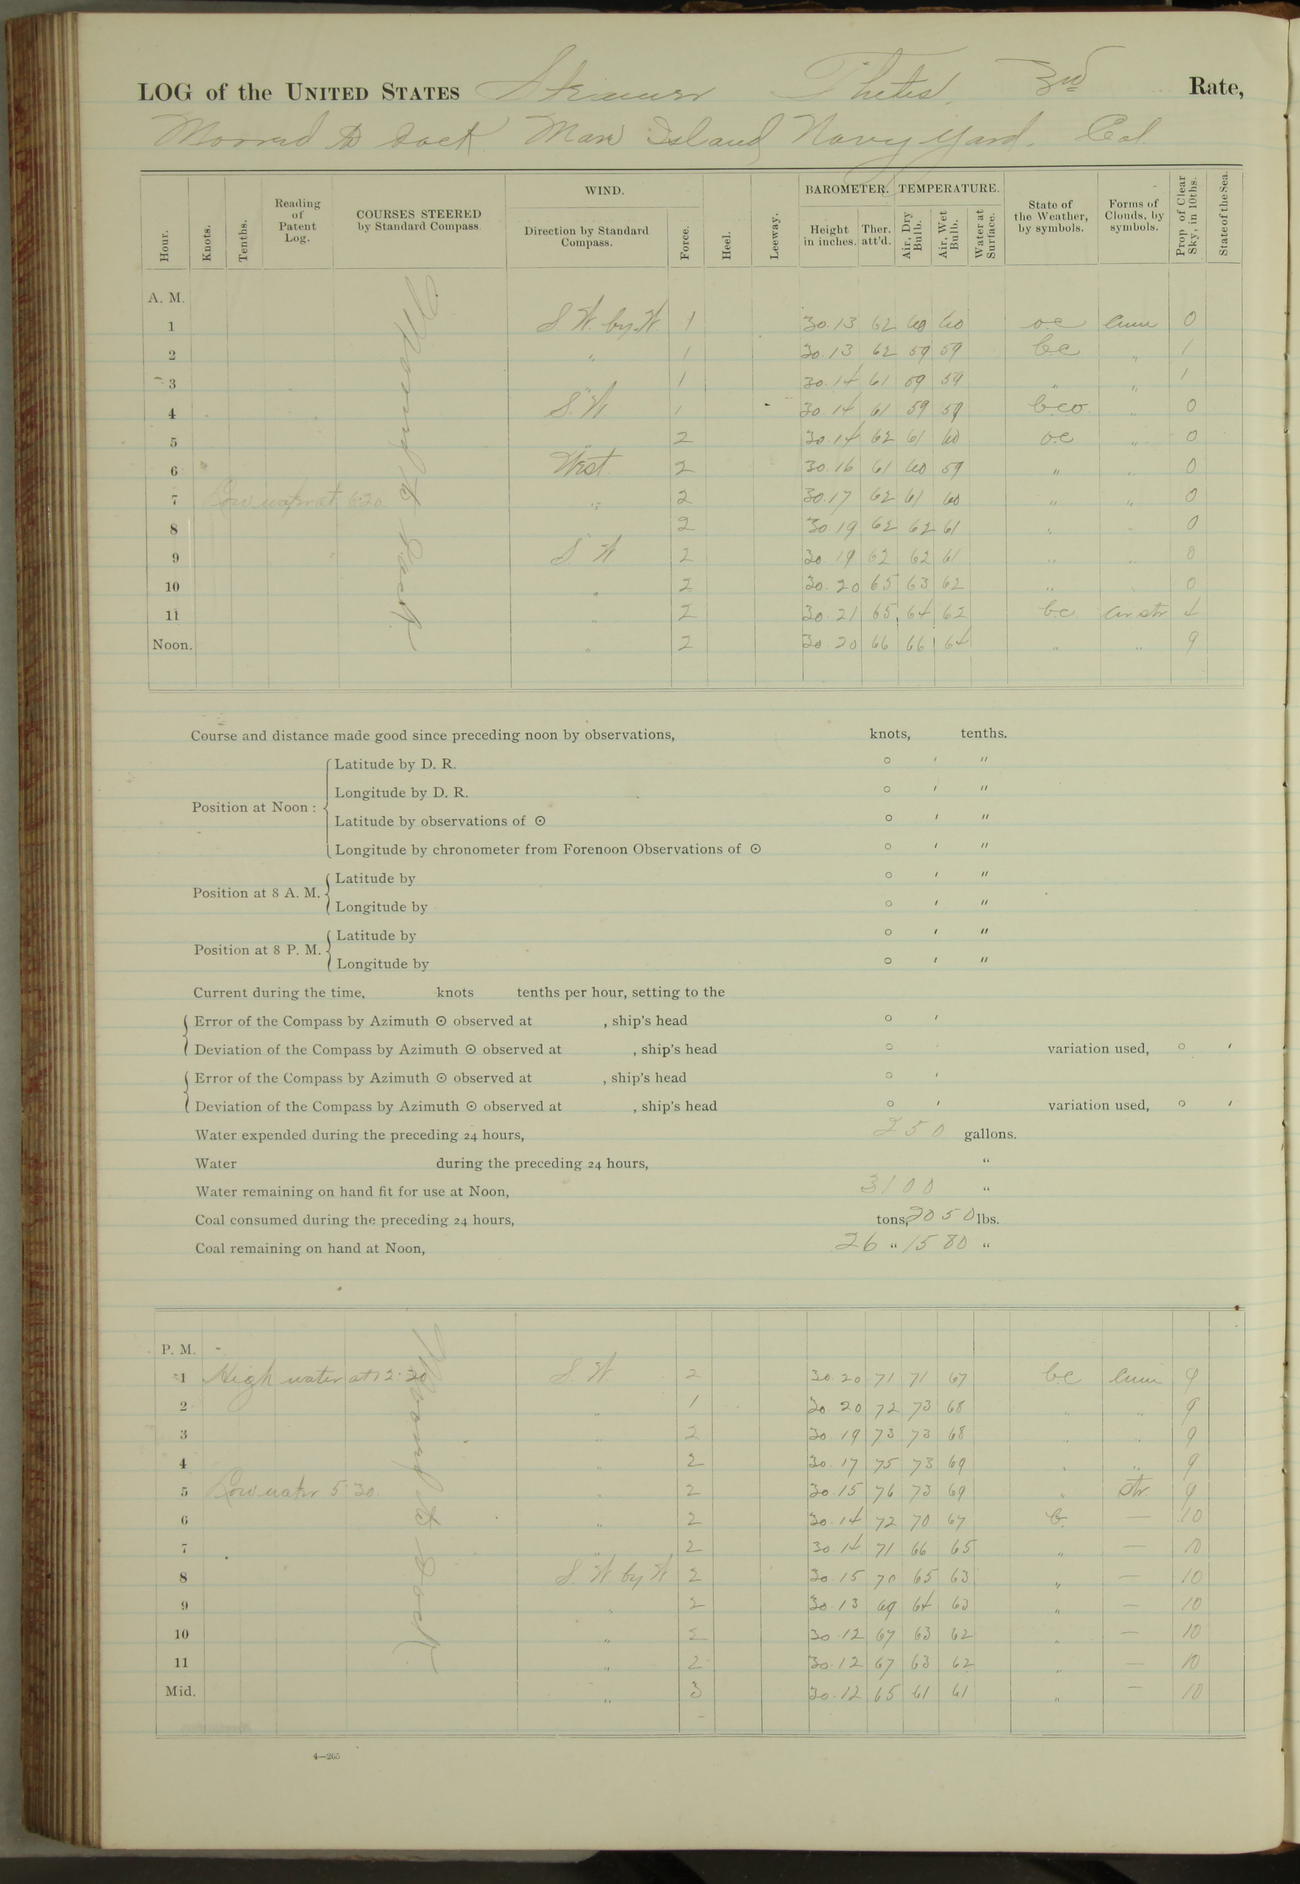 LOG of the UNITED STATES Steamer Thetis, 3rd Rate,
Moored to dock Mare Island Navy Yard. Cal.
Hour. Knots. Tenths. Reading of Patent Log. COURSES STEERED by Standard Compass. WIND. Direction by Standard Compass. Force. Heel. Leeway. BAROMETER. Height in inches. Ther. att'd. TEMPERATURE. Air, Dry Bulb. Air, Wet Bulb. Water at Surface. State of the Weather, by symbols. Forms of Clouds, by symbols. Prop. of Clear Sky, in 10ths. State of the Sea.
A. M.
Moored to Dock
1 S. W. by W 1 30.13 62 60 60 o.c. Cum 0
2 " 1 30.13 62 59 59 b.c. " 1
3 " 1 30.14 61 59 59 " " 1
4 S. W 1 30.14 61 59 59 b.c.o. " 0
5 " 2 30.14 62 61 60 o.c. " 0
6 West 2 30.16 61 60 59 " " 0
7 Low water at 6.20 " 2 30.17 62 61 60 " " 0
8 2 30.19 62 62 61 " " 0
9 S. W 2 30.19 62 62 61 " " 0
10 " 2 30.20 65 63 62 " 0
11 " 2 30.21 65 64 62 b.c. Cir str 4
Noon. " 2 30.20 66 66 64 " " 9
Course and distance made good since preceding noon by observations, knots, tenths.
Position at Noon :
Latitude by D. R. ° ′ ″
Longitude by D. R. ° ′ ″
Latitude by observations of ☉ ° ′ ″
Longitude by chronometer from Forenoon Observations of ☉ ° ′ ″
Position at 8 A. M.
Latitude by ° ′ ″
Longitude by ° ′ ″
Position at 8 P. M.
Latitude by ° ′ ″
Longitude by ° ′ ″
Current during the time, knots tenths per hour, setting to the
Error of the Compass by Azimuth ☉ observed at , ship's head ° ′
Deviation of the Compass by Azimuth ☉ observed at , ship's head ° ′ variation used, ° ′
Error of the Compass by Azimuth ☉ observed at , ship's head ° ′
Deviation of the Compass by Azimuth ☉ observed at , ship's head ° ′ variation used, ° ′
Water expended during the preceding 24 hours, 250 gallons.
Water during the preceding 24 hours, "
Water remaining on hand fit for use at Noon, 3100 "
Coal consumed during the preceding 24 hours, tons, 2050 lbs.
Coal remaining on hand at Noon, 26 " 1580 "
P. M.
Moored to Dock
1 High water at 12.20 S. W 2 30.20 71 71 67 b.c. Cum 9
2 " 1 30.20 72 73 68 " " 9
3 " 2 30.19 73 73 68 " " 9
4 " 2 30.17 75 73 69 " " 9
5 Low water 5.30 " 2 30.15 76 73 69 " Str 9
6 " 2 30.14 72 70 67 b. — 10
7 " 2 30.14 71 66 65 " — 10
8 S. W by W 2 30.15 70 65 63 " — 10
9 " 2 30.13 69 64 63 " — 10
10 " 2 30.12 67 63 62 " — 10
11 " 2 30.12 67 63 62 " — 10
Mid. " 3 30.12 65 61 61 " — 10
4—265